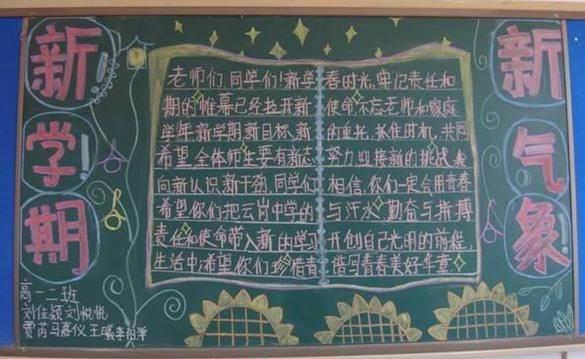 新学期
老师们 同学们!新学
期的帷幕已经拉开新
学年新学期新目标、新
希望,全体师生要有新志
向新认识新干劲,同学们
希望你们把云岗中学的
责任和使命带入新的学习
生活中,希望你们珍惜青
春时光,牢记责任和
使命不忘老师和家庭
的重托,抓住时机,共同
努力迎接新的挑战,我
相信,你们一定会用青春
与汗水,勤奋与拼搏
开创自己光明的前程,
谱写青春美好章
新气象
高一二班
刘佳颖 刘悦悦
贾芮 马嘉仪 王曦